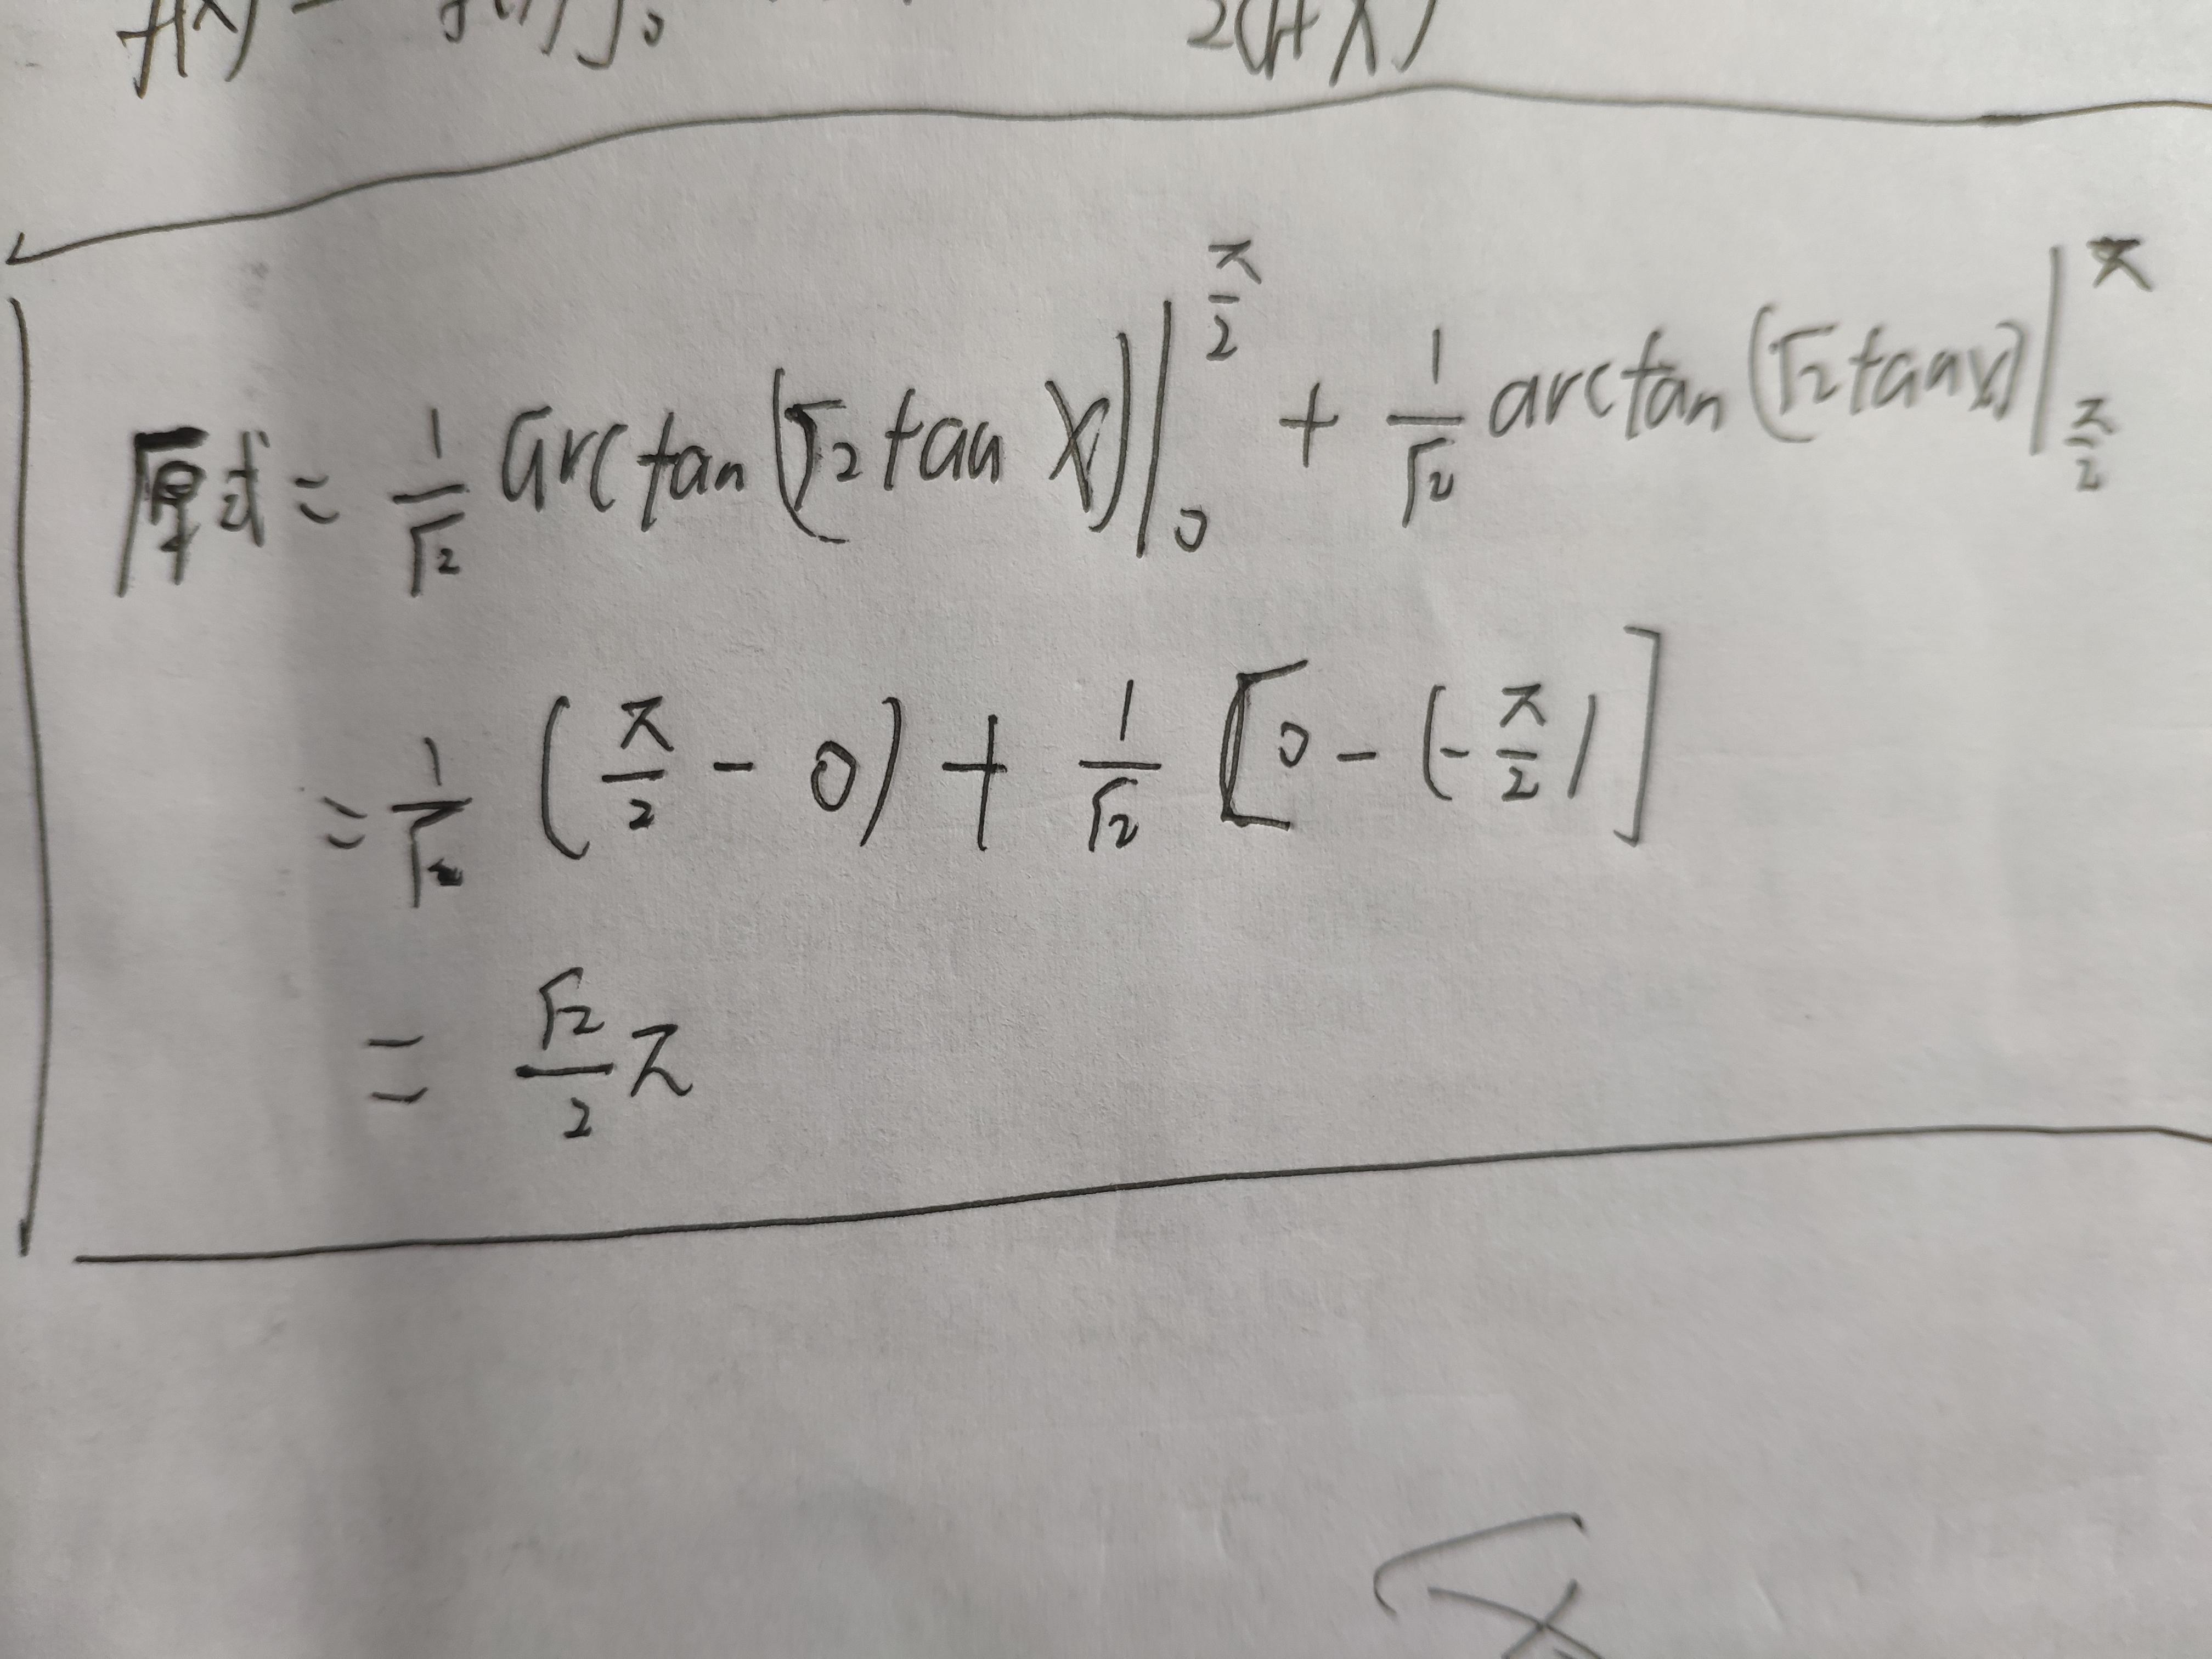 f(x) 2(1+x)
原式 = 1/√2 arctan(√2 tan x)|₀^(π/2) + 1/√2 arctan(√2 tan x)|_(π/2)^π
= 1/√2 (π/2 - 0) + 1/√2 [0 - (-π/2)]
= √2/2 π